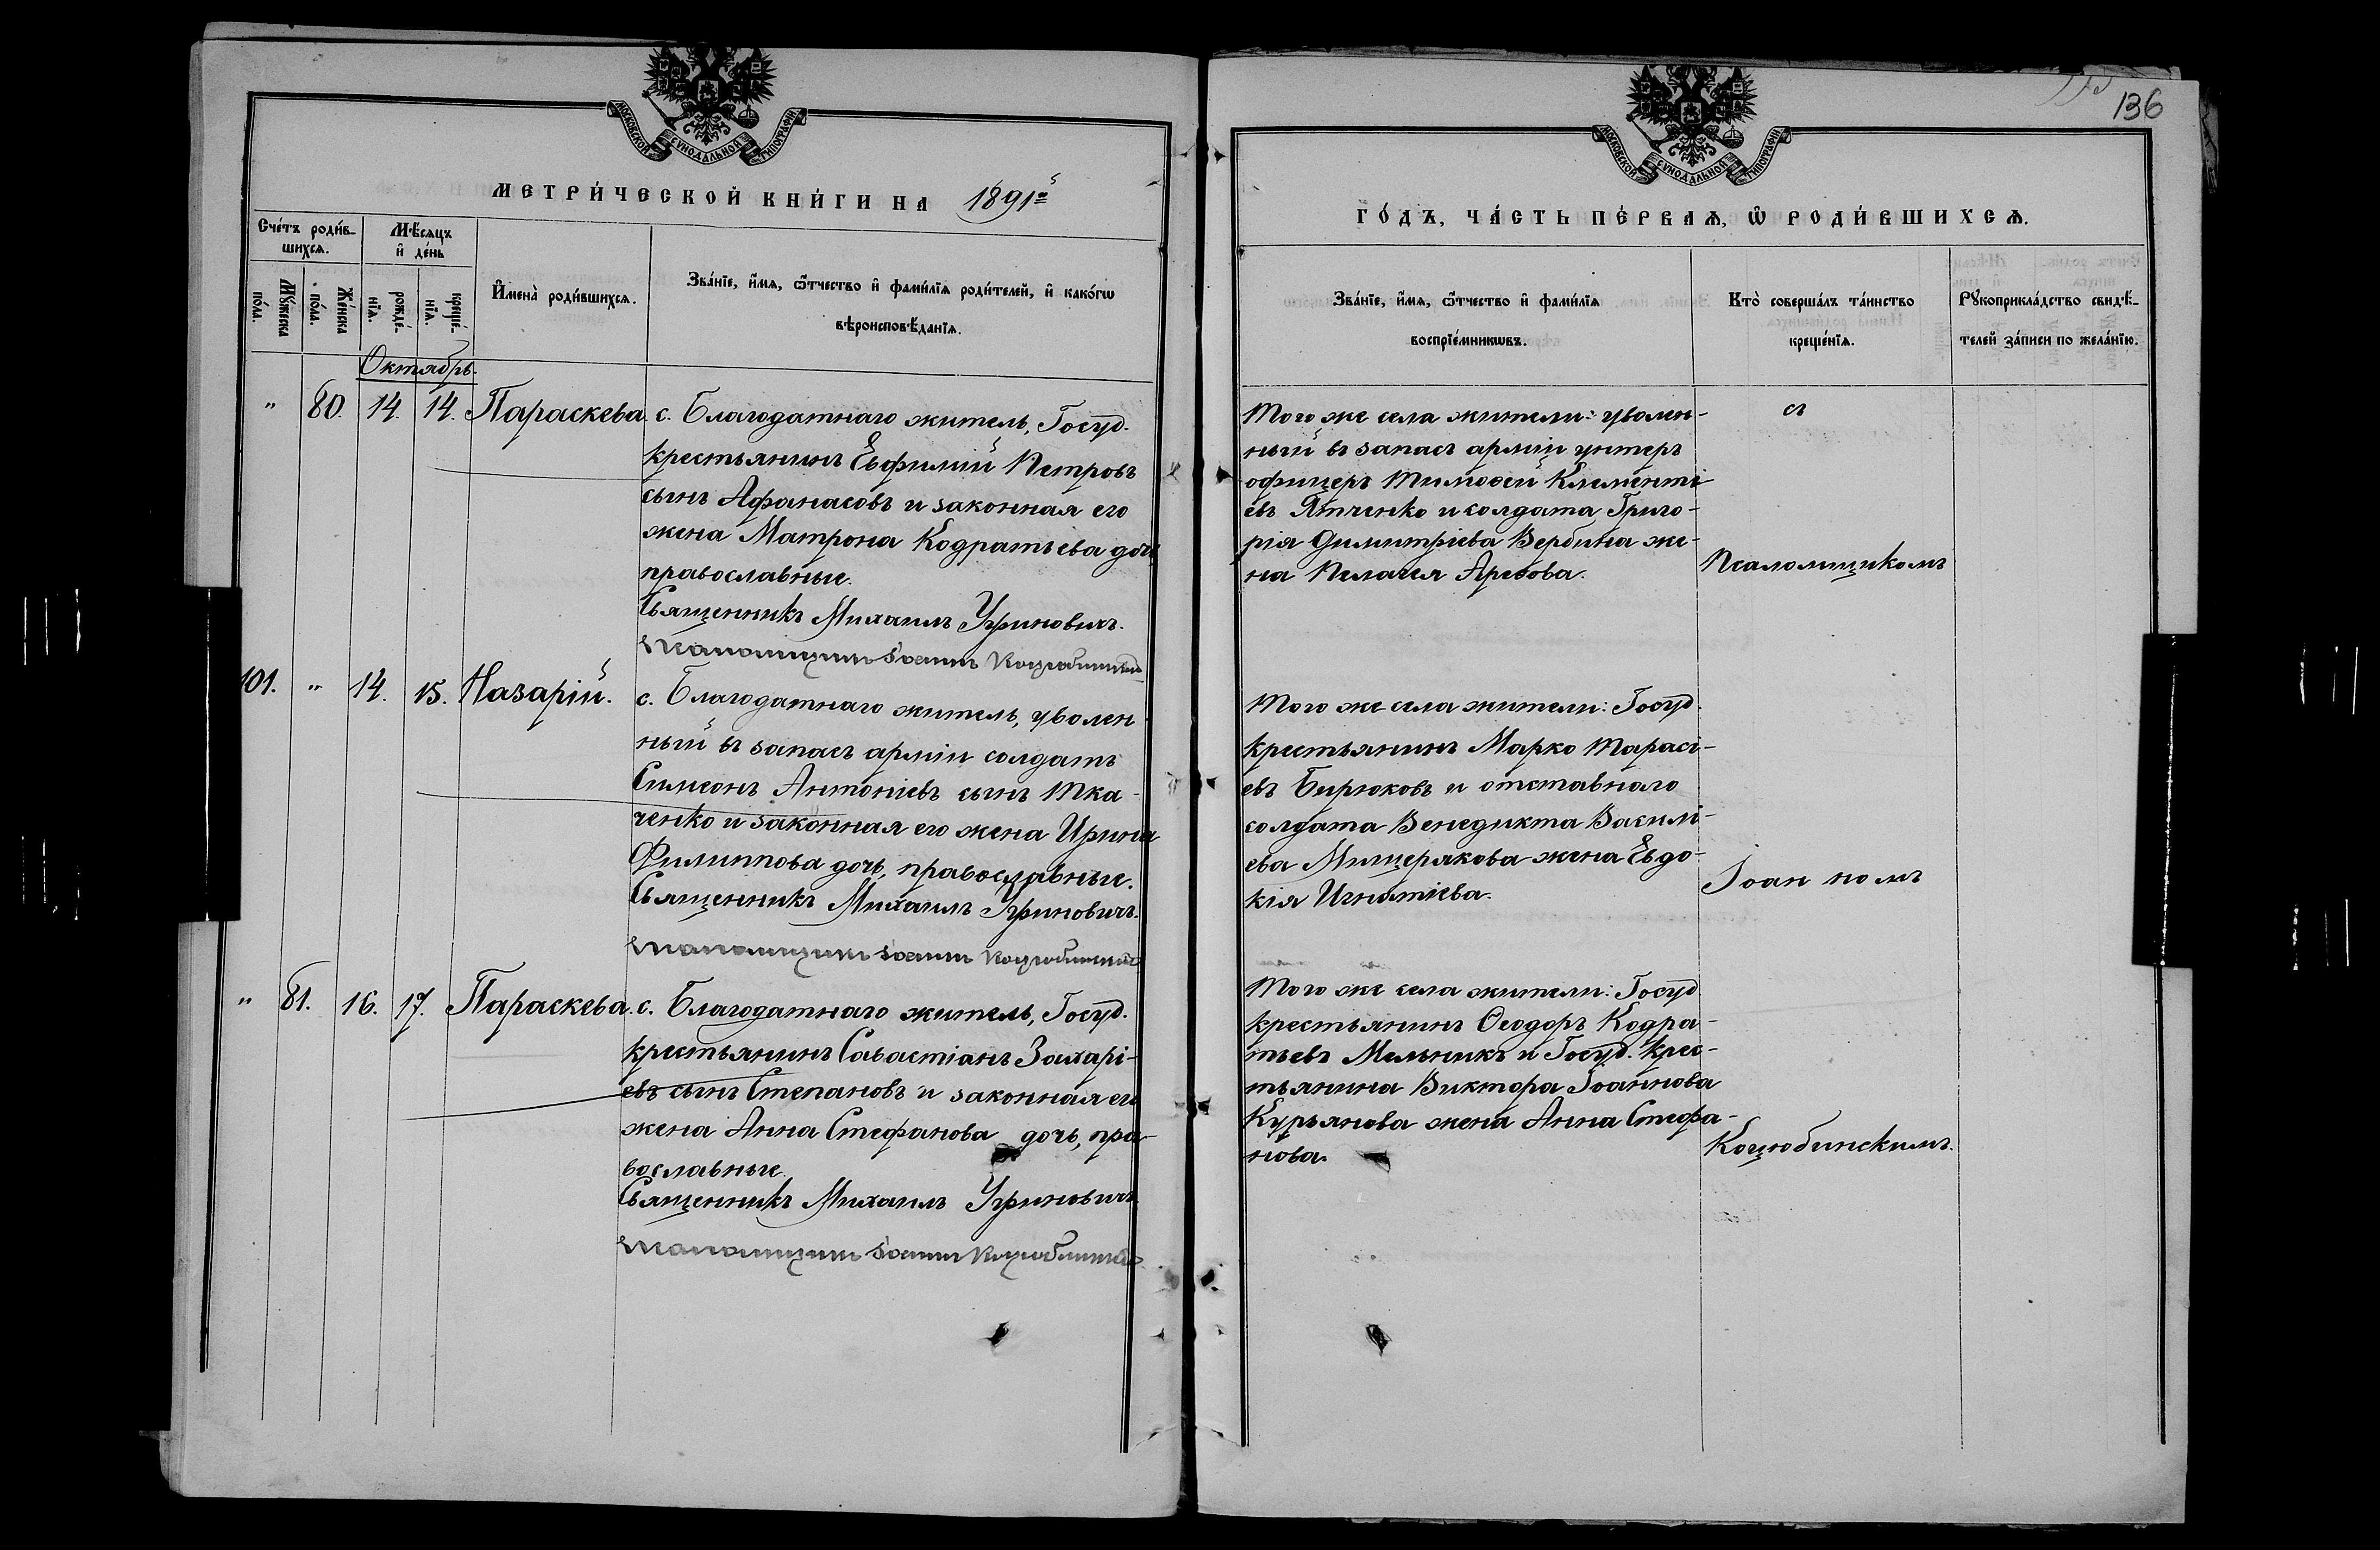 МОСКОВСКОЙ СУНОДАЛЬНОЙ ТИПОГРАФІИ
МЕТРИ́ЧЕСКОЙ КНИ́ГИ НА 1891й
Сче́тъ роди́в-
шихсѧ.
Мѣ́сѧцъ
и҆ де́нь
Мꙋ́жеска
по́ла.
Же́нска
по́ла.
рожде́-
нїѧ.
креще́-
нїѧ.
И҆мена̀ роди́вшихсѧ.
Зва́нїе, и҆́мѧ, ѻ҆́тчество и҆ фами́лїѧ роди́телей, и҆ како́гѡ
вѣроисповѣ́данїѧ.
Октябрь.
" 80. 14. 14. Параскева. с. Благодатнаго житель, Госуд.
крестьянинъ Евфимій Петровъ
сынъ Афанасовъ и законная его
жена Матрона Кодратьева дочь,
православные.
Священникъ Михаилъ Угриновичъ.
Псаломщикъ Іоаннъ Коцюбинскій
101. " 14. 15. Назарій. с. Благодатнаго житель, уволен
ный въ запасъ арміи солдатъ
Симеонъ Антоніевъ сынъ Тка-
ченко и законная его жена Ирина
Филиппова дочь, православные.
Священникъ Михаилъ Угриновичъ.
Псаломщикъ Іоаннъ Коцюбинскій
" 81. 16. 17. Параскева. с. Благодатнаго житель, Госуд.
крестьянинъ Савастіанъ Захарі-
евъ сынъ Степановъ и законная его
жена Анна Стефанова дочь, пра-
вославные.
Священникъ Михаилъ Угриновичъ.
Псаломщикъ Іоаннъ Коцюбинскій
136
МОСКОВСКОЙ СУНОДАЛЬНОЙ ТИПОГРАФІИ
ГО́ДЪ, ЧА́СТЬ ПЕ́РВАѦ, Ѡ҆ РОДИ́ВШИХСѦ.
Зва́нїе, и҆́мѧ, ѻ҆́тчество и҆ фами́лїѧ
воспрїе́мникѡвъ.
Кто̀ соверша́лъ та́инство
креще́нїѧ.
Рꙋкоприкла́дство свидѣ́-
телей за́писи по жела́нїю.
Того же села жители: уволен-
ный въ запасъ арміи унтеръ
офицеръ Тимоѳей Клементі-
евъ Ятченко и солдата Григо-
рія Димитріева Вербина же-
на Пелагея Арефова.
съ
Псаломщикомъ
Того же села жители: Госуд.
крестьянинъ Марко Тарасі-
евъ Бирюковъ и отставного
солдата Венедикта Василі-
ева Мищерякова жена Евдо-
кія Игнатіева.
Іоан номъ
Того же села жители: Госуд.
крестьянинъ Ѳеодоръ Кодра-
тьевъ Мельникъ и Госуд. крес-
тьянина Виктора Іоаннова
Курьянова жена Анна Стефа-
нова.
Коцюбинскимъ.